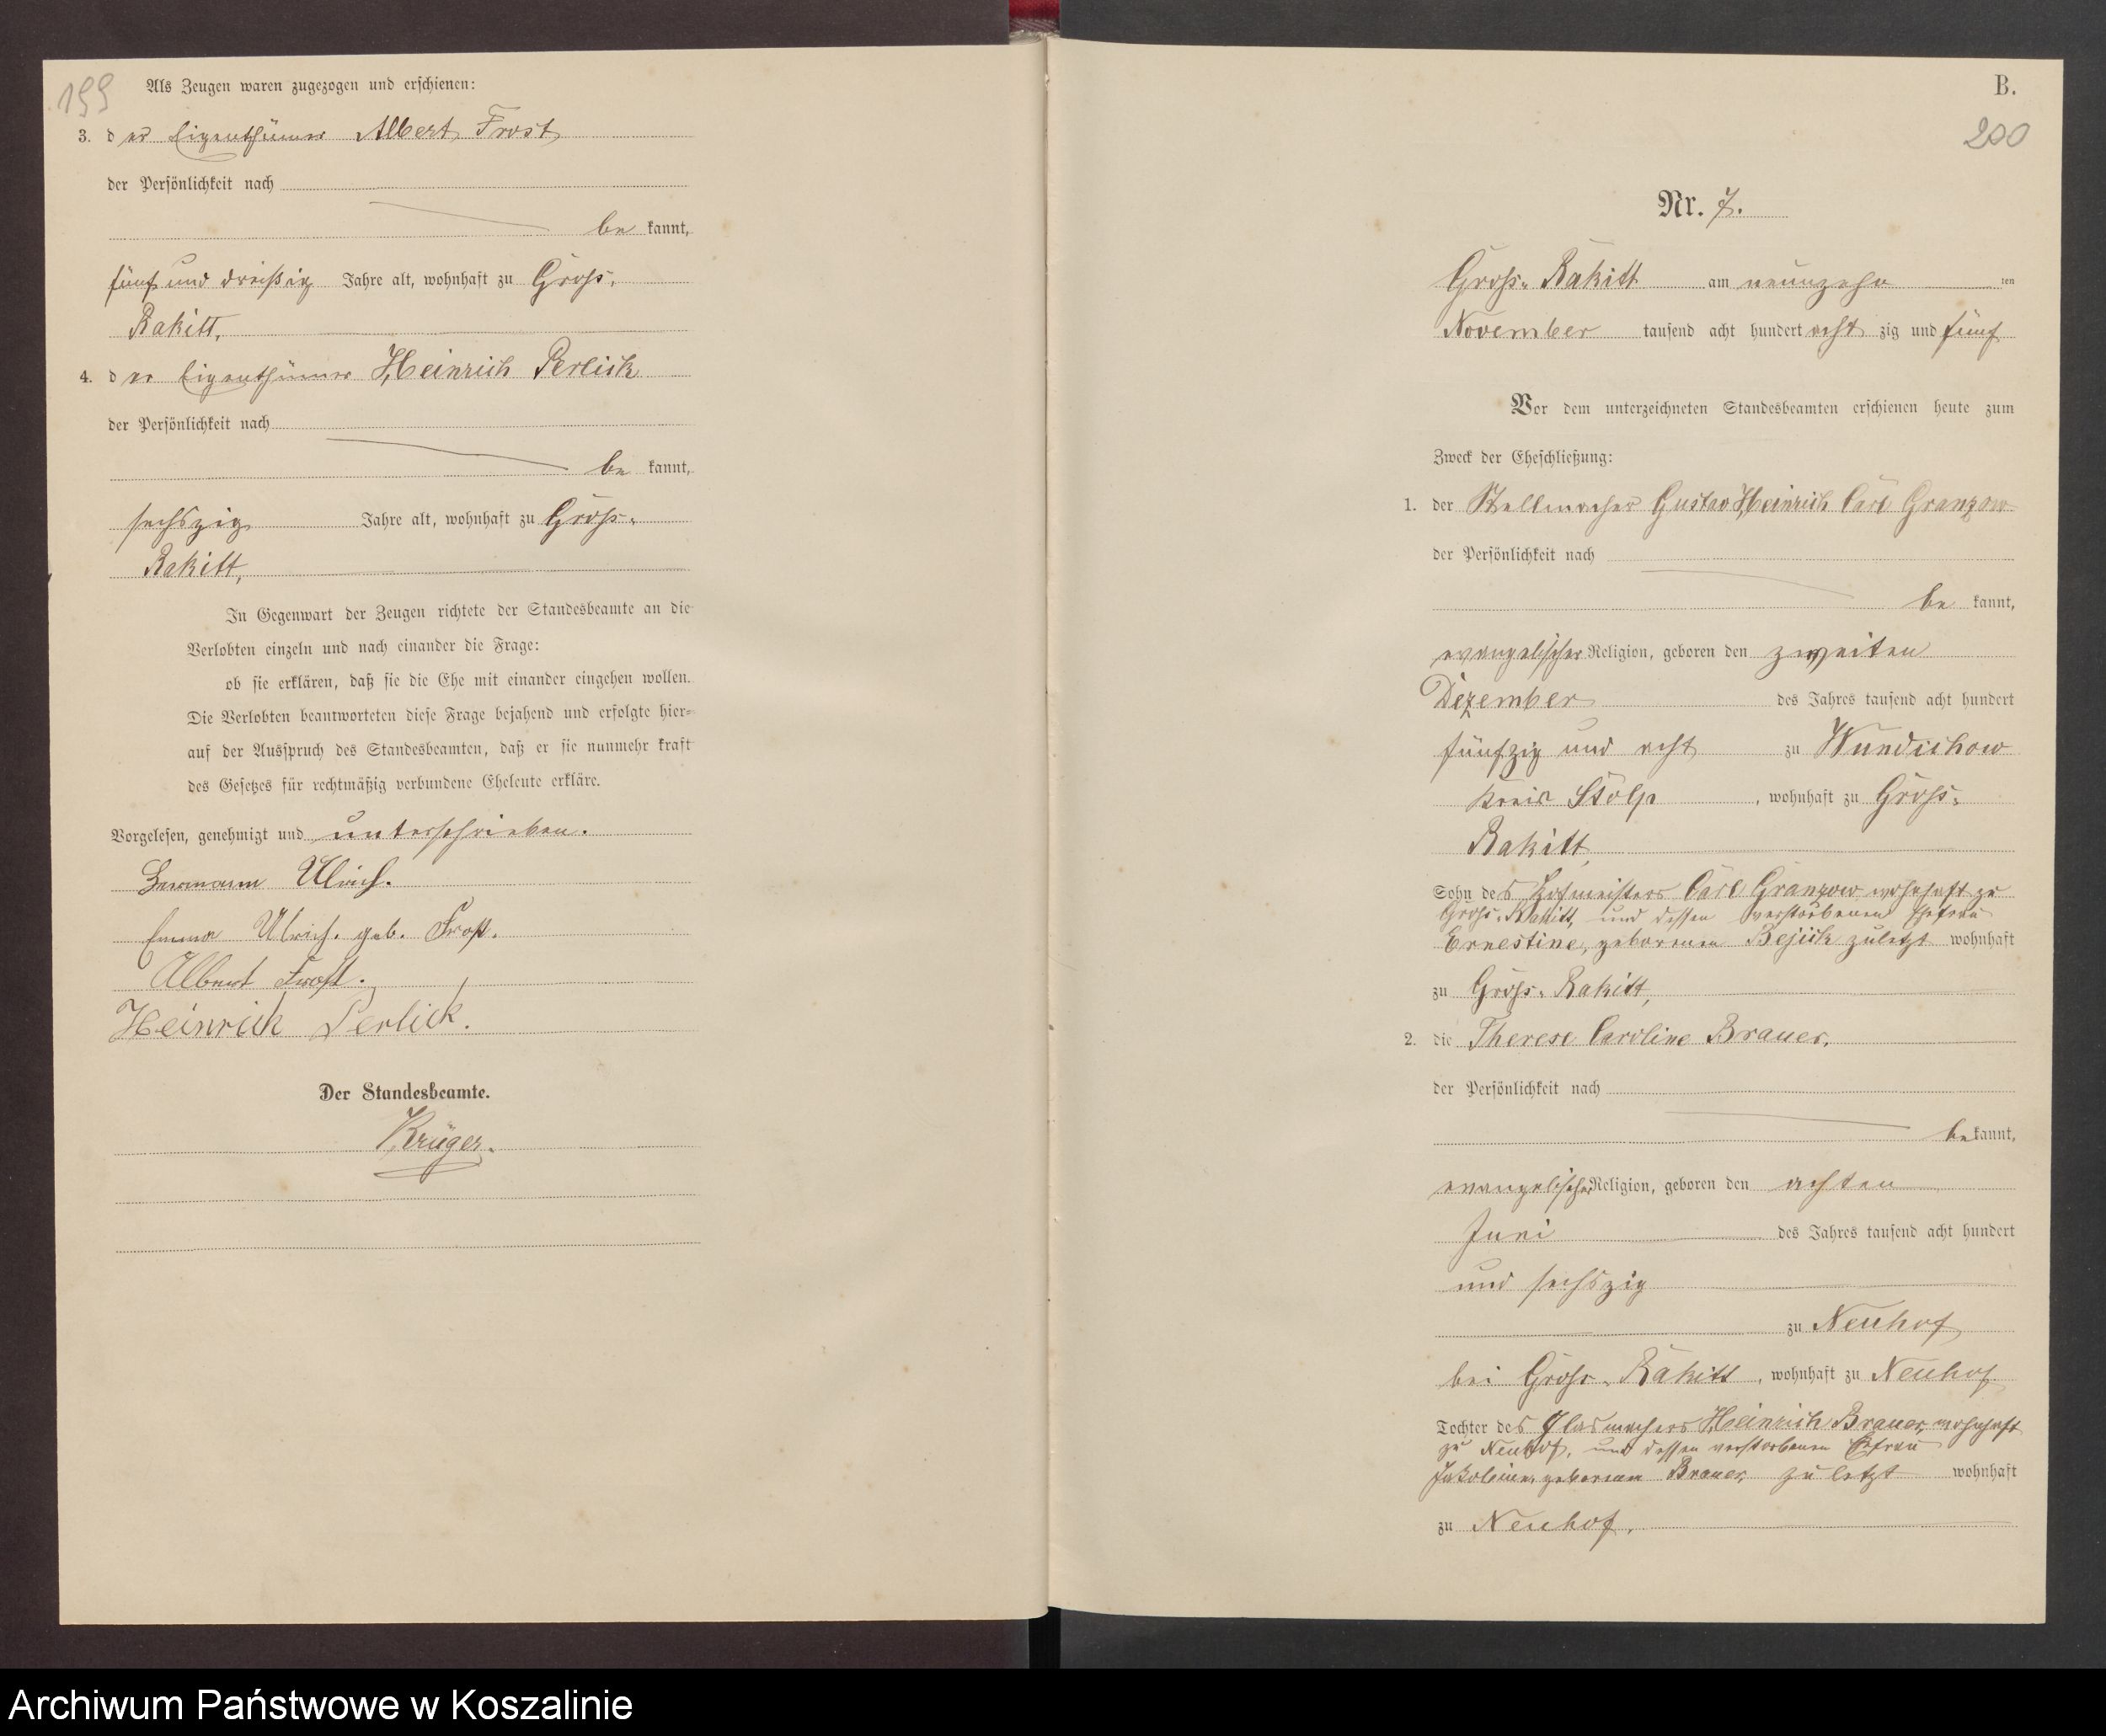 199
Als Zeugen waren zugezogen und erschienen:
3. der Eigenthümer Albert Frost
der Persönlichkeit nach
be kannt,
fünf und dreißig Jahre alt, wohnhaft zu Groß-
Rakitt,
4. der Eigenthümer Heinrich Perlick
der Persönlichkeit nach
be kannt,
sechszig Jahre alt, wohnhaft zu Groß-
Rakitt,
In Gegenwart der Zeugen richtete der Standesbeamte an die
Verlobten einzeln und nach einander die Frage:
ob sie erklären, daß sie die Ehe mit einander eingehen wollen.
Die Verlobten beantworteten diese Frage bejahend und erfolgte hier-
auf der Ausspruch des Standesbeamten, daß er sie nunmehr kraft
des Gesetzes für rechtmäßig verbundene Eheleute erkläre.
Vorgelesen, genehmigt und unterschrieben.
Hermann Ulrich.
Emma Ulrich. geb. Frost.
Albert Frost.
Heinrich Perlick.
Der Standesbeamte.
Krüger.
B.
200
Nr. 7.
Groß-Rakitt am neunzehn ten
November tausend acht hundert acht zig und fünf
Vor dem unterzeichneten Standesbeamten erschienen heute zum
Zweck der Eheschließung:
1. der Stellmacher Gustav Heinrich Carl Granzow
der Persönlichkeit nach
be kannt,
evangelischer Religion, geboren den zweiten
Dezember des Jahres tausend acht hundert
fünfzig und acht zu Wundichow
Kreis Stolp, wohnhaft zu Groß-
Rakitt,
Sohn des Hofmeisters Carl Granzow, wohnhaft zu
Groß-Rakitt, und dessen verstorbenen Ehefrau
Ernestine, geborenen zuletzt wohnhaft
zu Groß-Rakitt,
2. die Therese Caroline Brauer,
der Persönlichkeit nach
be kannt,
evangelischer Religion, geboren den achten
Juni des Jahres tausend acht hundert
und sechszig
zu Neuhof
bei Groß-Rakitt, wohnhaft zu Neuhof
Tochter des Glasmachers Heinrich Brauer, wohnhaft
zu Neuhof, und dessen verstorbenen Ehefrau
geborenen Brauer, zuletzt wohnhaft
zu Neuhof.
Archiwum Państwowe w Koszalinie